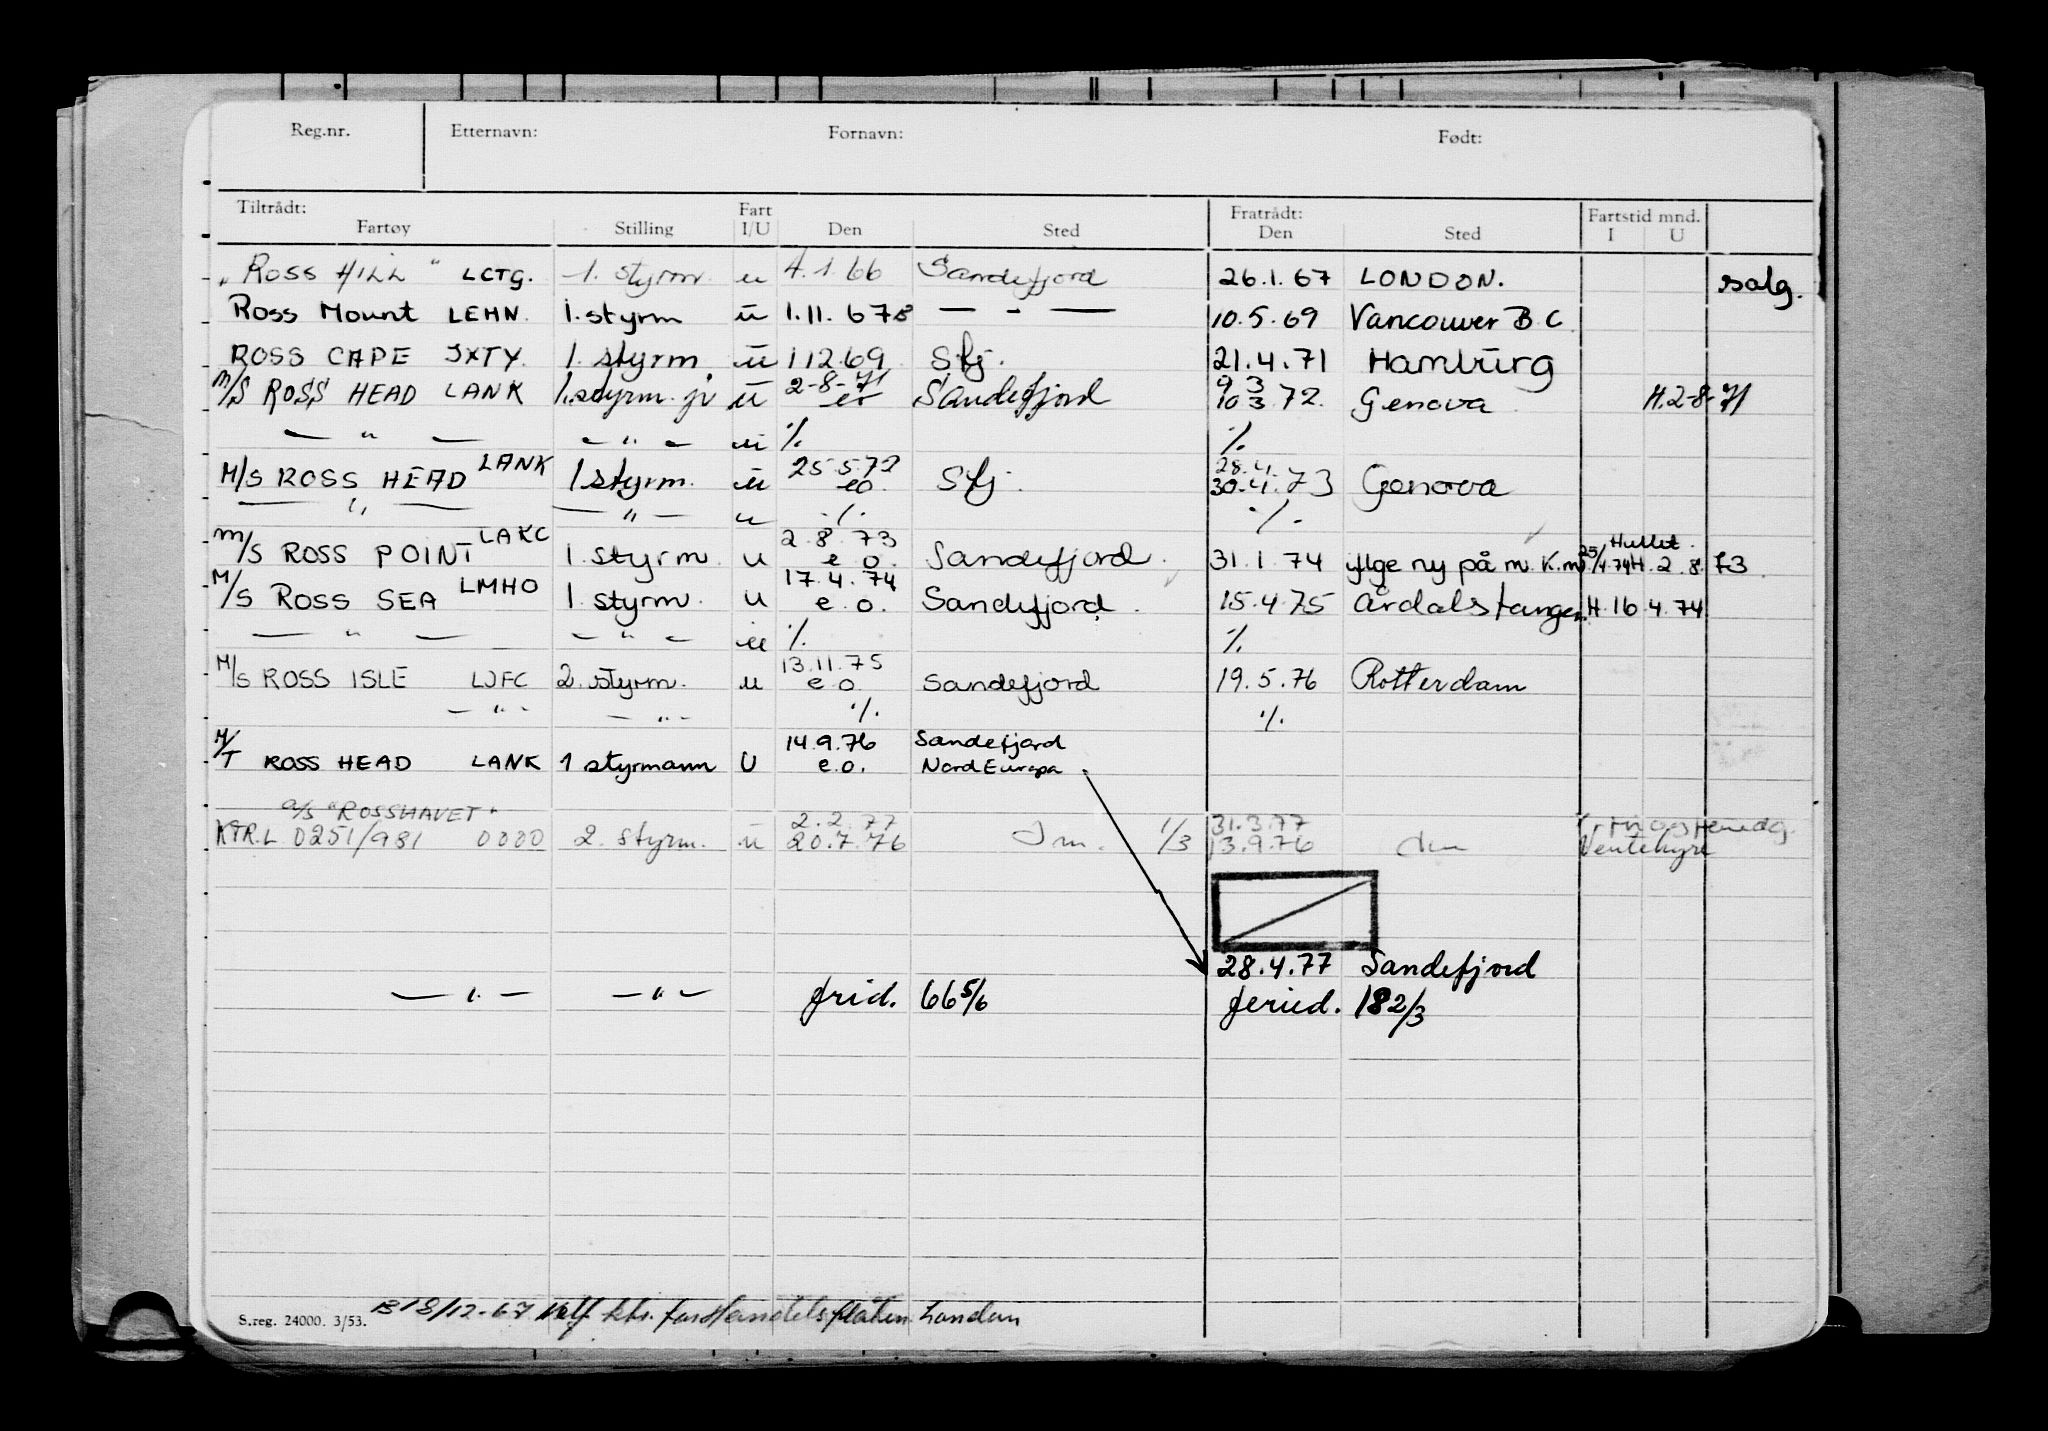 Reg.nr. Etternavn: Fornavn: Født:
Tiltrådt: Fart Fratrådt: Fartstid mnd.
Fartøy Stilling I/U Den Sted Den Sted I U
„ROSS HILL" LCTG. 1. styrm. u 4.1.66 Sandefjord 26.1.67 LONDON. salg.
Ross Mount LEHN. 1. styrm ū 1.11.67 — " — 10.5.69 Vancouver B.C.
ROSS CAPE JXTY. 1. styrm. ū 1 12.69 Sfj. 21.4.71 Hamburg
2-8-71 9 3
M/S ROSS HEAD LANK 1. styrm. jr ū eo Sandefjord 10.3.72. Genova. H.2-8-71
— " — — " — u ./. ./.
LANK 25.5.72 28.4.
M/S ROSS HEAD 1 styrm. u eo. Sfj. 30.4.73 Genova
— " — — " — u ./. ./.
LAKC 2.8.73 Hullet.
M/S ROSS POINT 1. styrm. u e.o. Sandefjord. 31.1.74 iflge ny på m. K.m. 25/4.74 H. 2.8.73
LMHO 17.4.74
M/S ROSS SEA 1. styrm. u e.o. Sandefjord. 15.4.75 Årdalstangen H.16.4.74
— " — — " — u ./. ./.
13.11.75
M/S ROSS ISLE LJFC 2. styrm. u e.o. Sandefjord 19.5.76 Rotterdam
— " — — " — ./. ./.
14.9.76 Sandefjord
M/T ROSS HEAD LANK 1 styrmann U e.o. Nord Europa
A/S "ROSSHAVET" 2.2.77 31.3.77
KTR.L 0251/981 0000 2. styrm. ū 20.7.76 1/3 13.9.76 Ventehyre
28.4.77 Sandefjord
— " — — " — frid. 66 5/6 feried. 18 2/3
B 18/12-67 ktr. for Handelsflåten London
S.reg. 24000. 3/53.